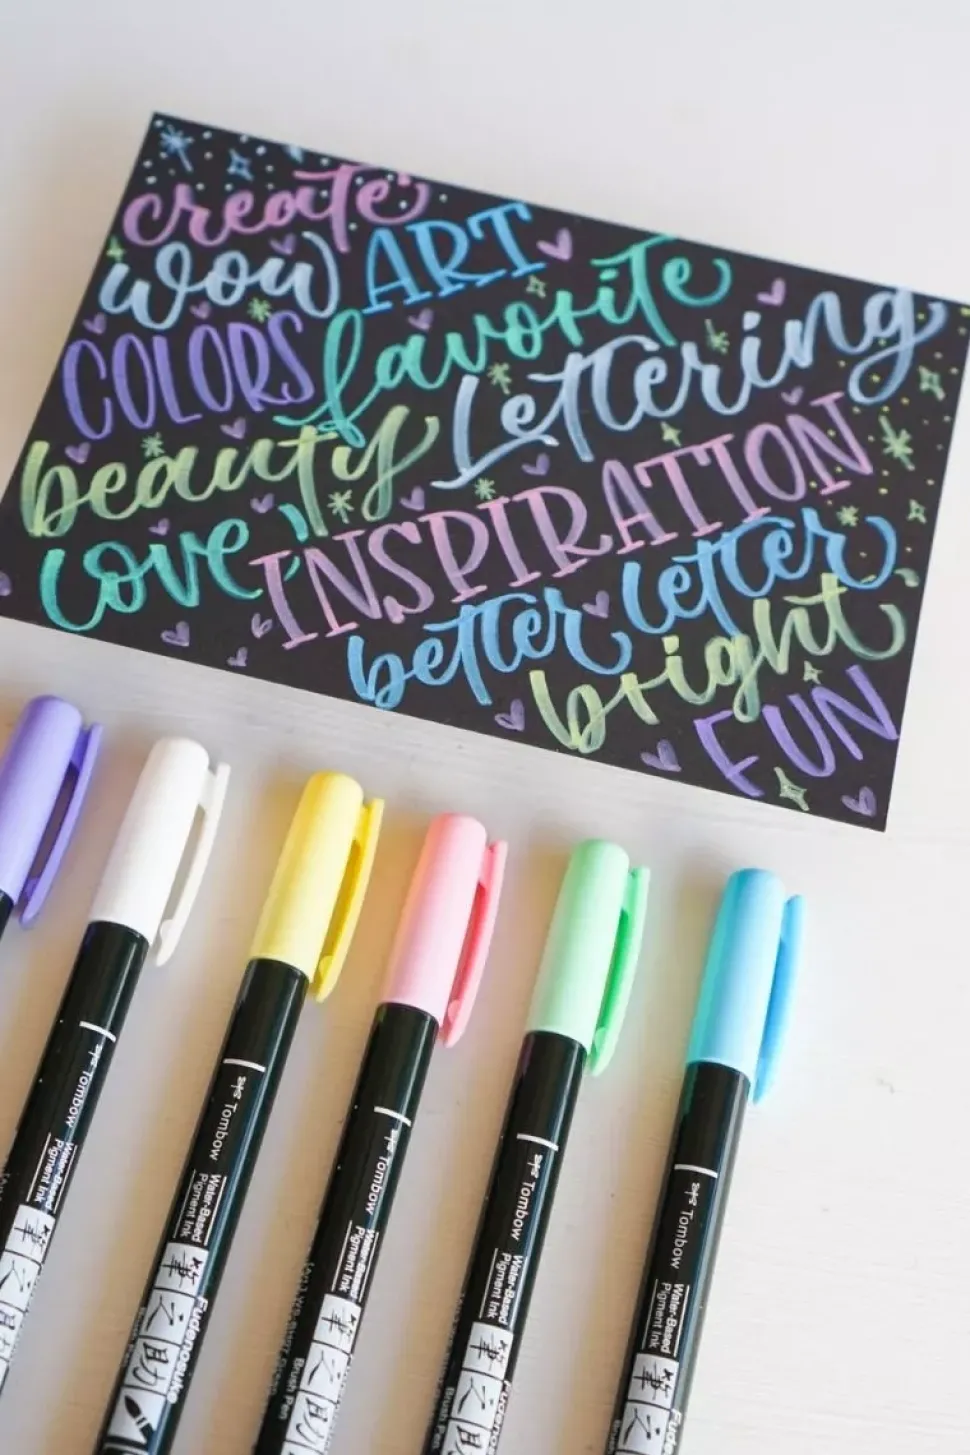 create
wow ART
COLORS favorite
beauty Lettering
love INSPIRATION
better letter
bright
FUN
Tombow
Water-Based
Pigment Ink
筆之
Tombow
Water-Based
Pigment Ink
筆之助
Fudenosuke
Tombow
Water-Based
Pigment Ink
筆之助
Brush Pen
Tombow
Water-Based
Pigment Ink
筆之助
Brush Pen
Tombow
Water-Based
Pigment Ink
筆之